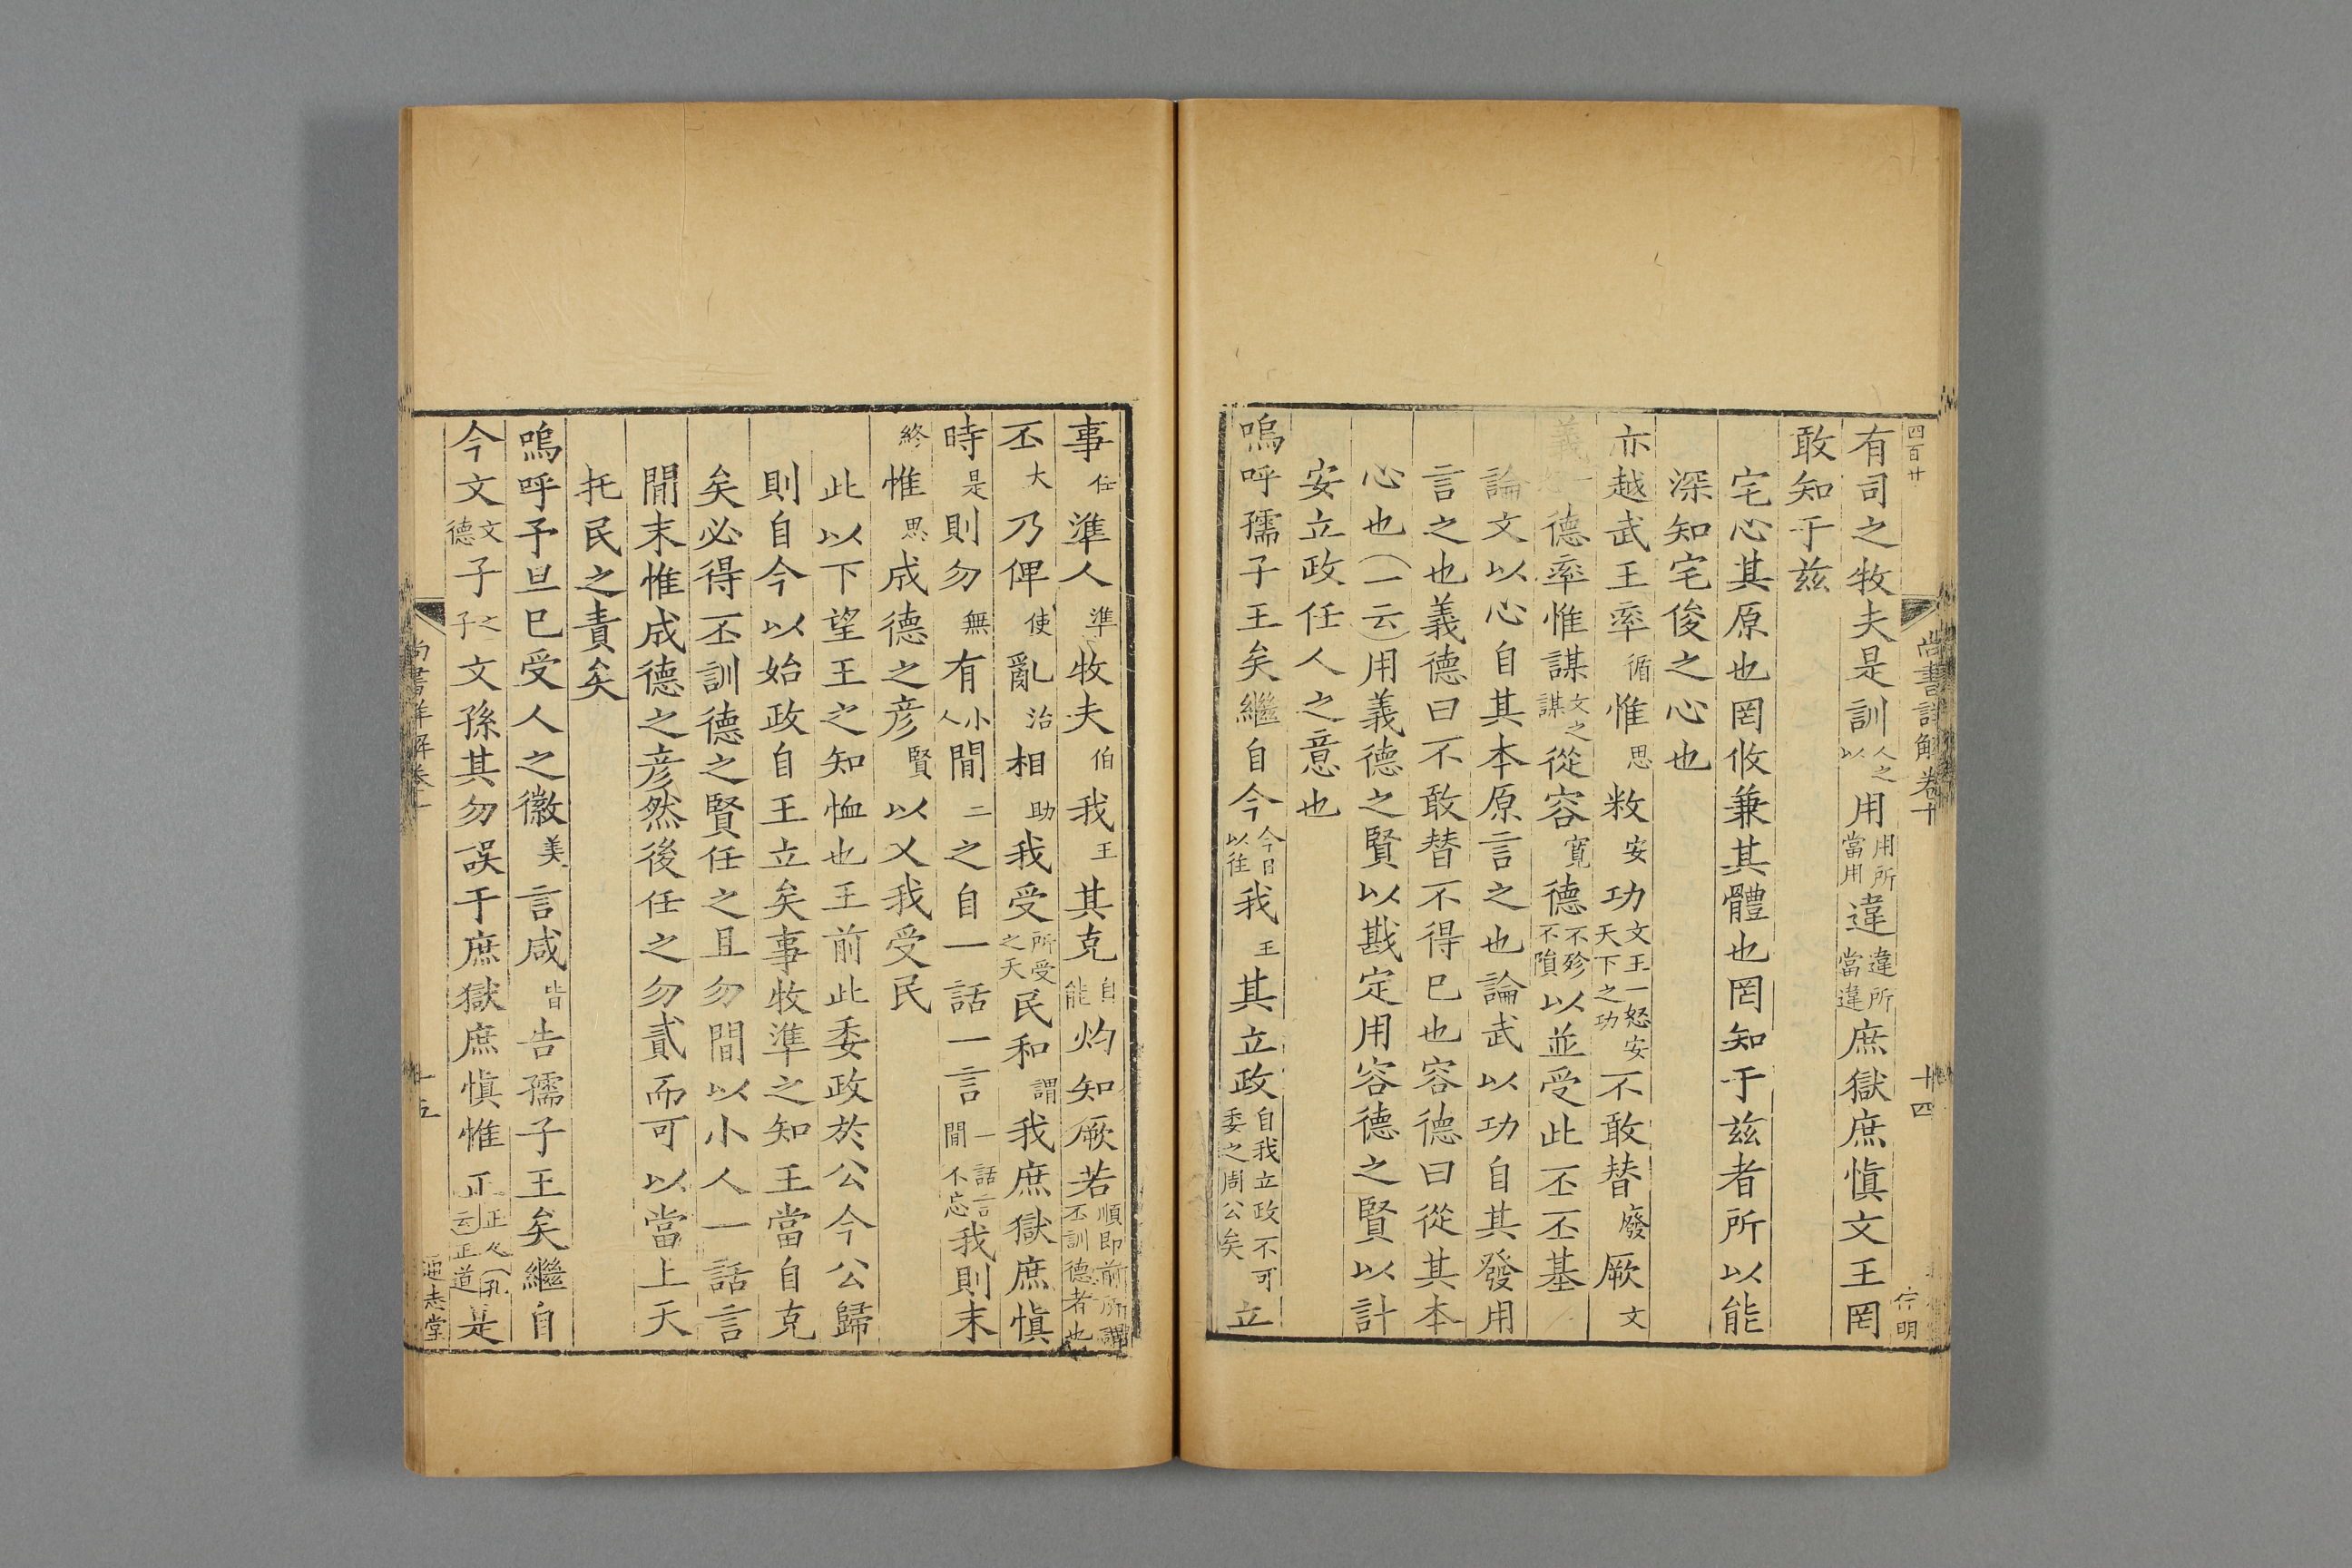 四百廿
尚書詳解卷十
十四
仁明
有司之牧夫是訓人之以用用所當用違違所當違庶獄庶愼文王罔
敢知于兹
宅心其原也罔攸兼其體也罔知于兹者所以能
深知宅俊之心也
亦越武王率循惟思敉安功文王一怒安天下之功不敢替廢厥文
義德率惟謀文之謀從容寬德不殄不隕以並受此丕丕基
論文以心自其本原言之也論武以功自其發用
言之也義德曰不敢替不得已也容德曰從其本
心也(一云)用義德之賢以戡定用容德之賢以計
安立政任人之意也
嗚呼孺子王矣繼自今今日以往我王其立政自我立政不可委之周公矣立
事任準人準牧夫伯我王其克自能灼知厥若順即前所謂丕訓德者也
丕大乃俾使亂治相助我受所受之天民和謂我庶獄庶愼
時是則勿無有小人間二之自一話一言一話一言間不忘我則末
終惟思成德之彦賢以乂我受民
此以下望王之知恤也王前此委政於公今公歸
則自今以始政自王立矣事牧準之知王當自克
矣必得丕訓德之賢任之且勿間以小人一話言
間末惟成德之彦然後任之勿貳而可以當上天
托民之責矣
嗚呼予旦已受人之徽美言咸皆告孺子王矣繼自
今文文德子之子文孫其勿誤于庶獄庶愼惟正正人(孔云)正道是
尚書詳解卷十
十五
迎志堂